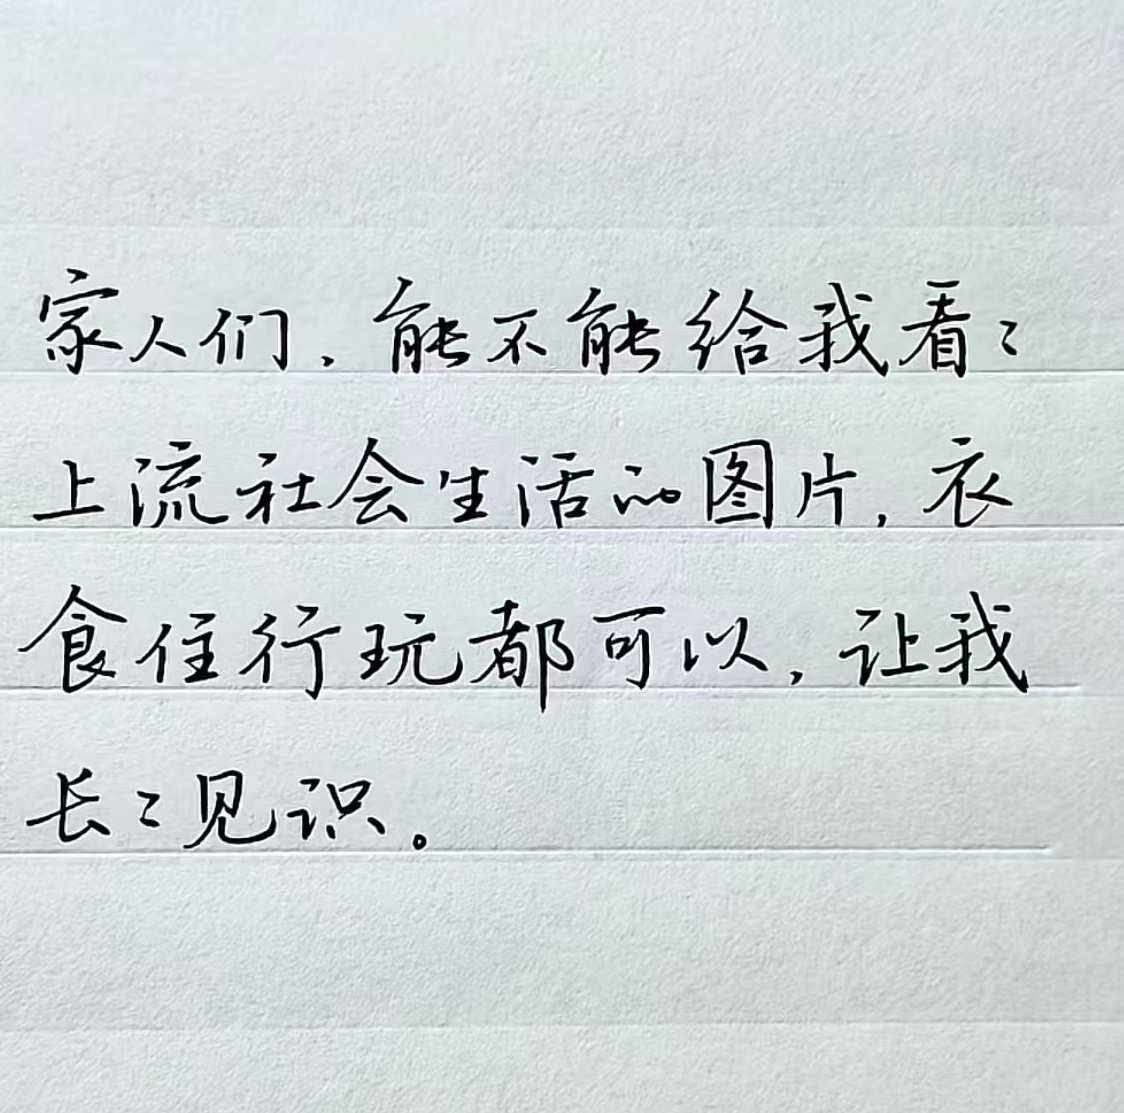 家人们，能不能给我看々
上流社会生活的图片，衣
食住行玩都可以，让我
长々见识。